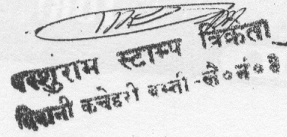 परशुराम स्टाम्प विक्रेता
दिवानी कचेहरी बस्ती लै० नं० ८